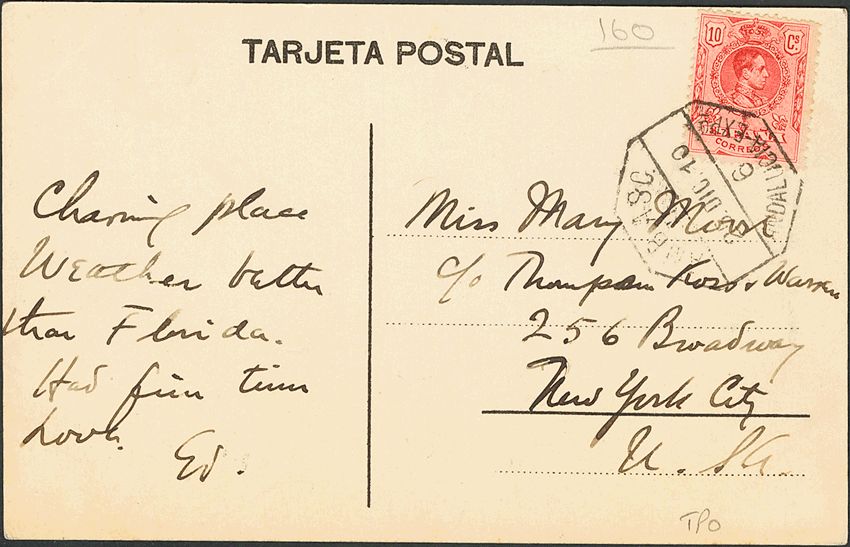 160
TARJETA POSTAL
10 Cs
CORREOS
26 DIC. 10
Charming place
Weather better
than Florida.
Had fine time
Love.
Ed.
Miss Mary
c/o Thompson & Warren
256 Broadway
New York City
U. SA.
TPO